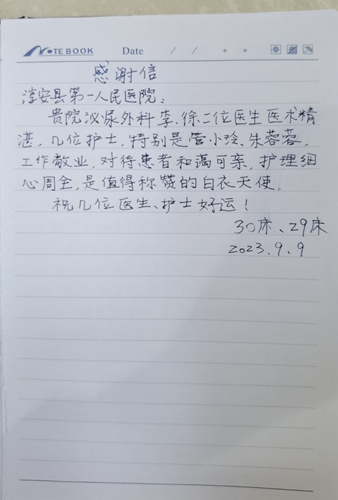 NOTE BOOK Date / /
感谢信
淳安县第一人民医院:
贵院泌尿外科李、徐二位医生医术精
湛,几位护士,特别是管小玲、朱蓉蓉,
工作敬业,对待患者和蔼可亲,护理细
心周全,是值得称赞的白衣天使。
祝几位医生、护士好运!
30床、29床
2023.9.9